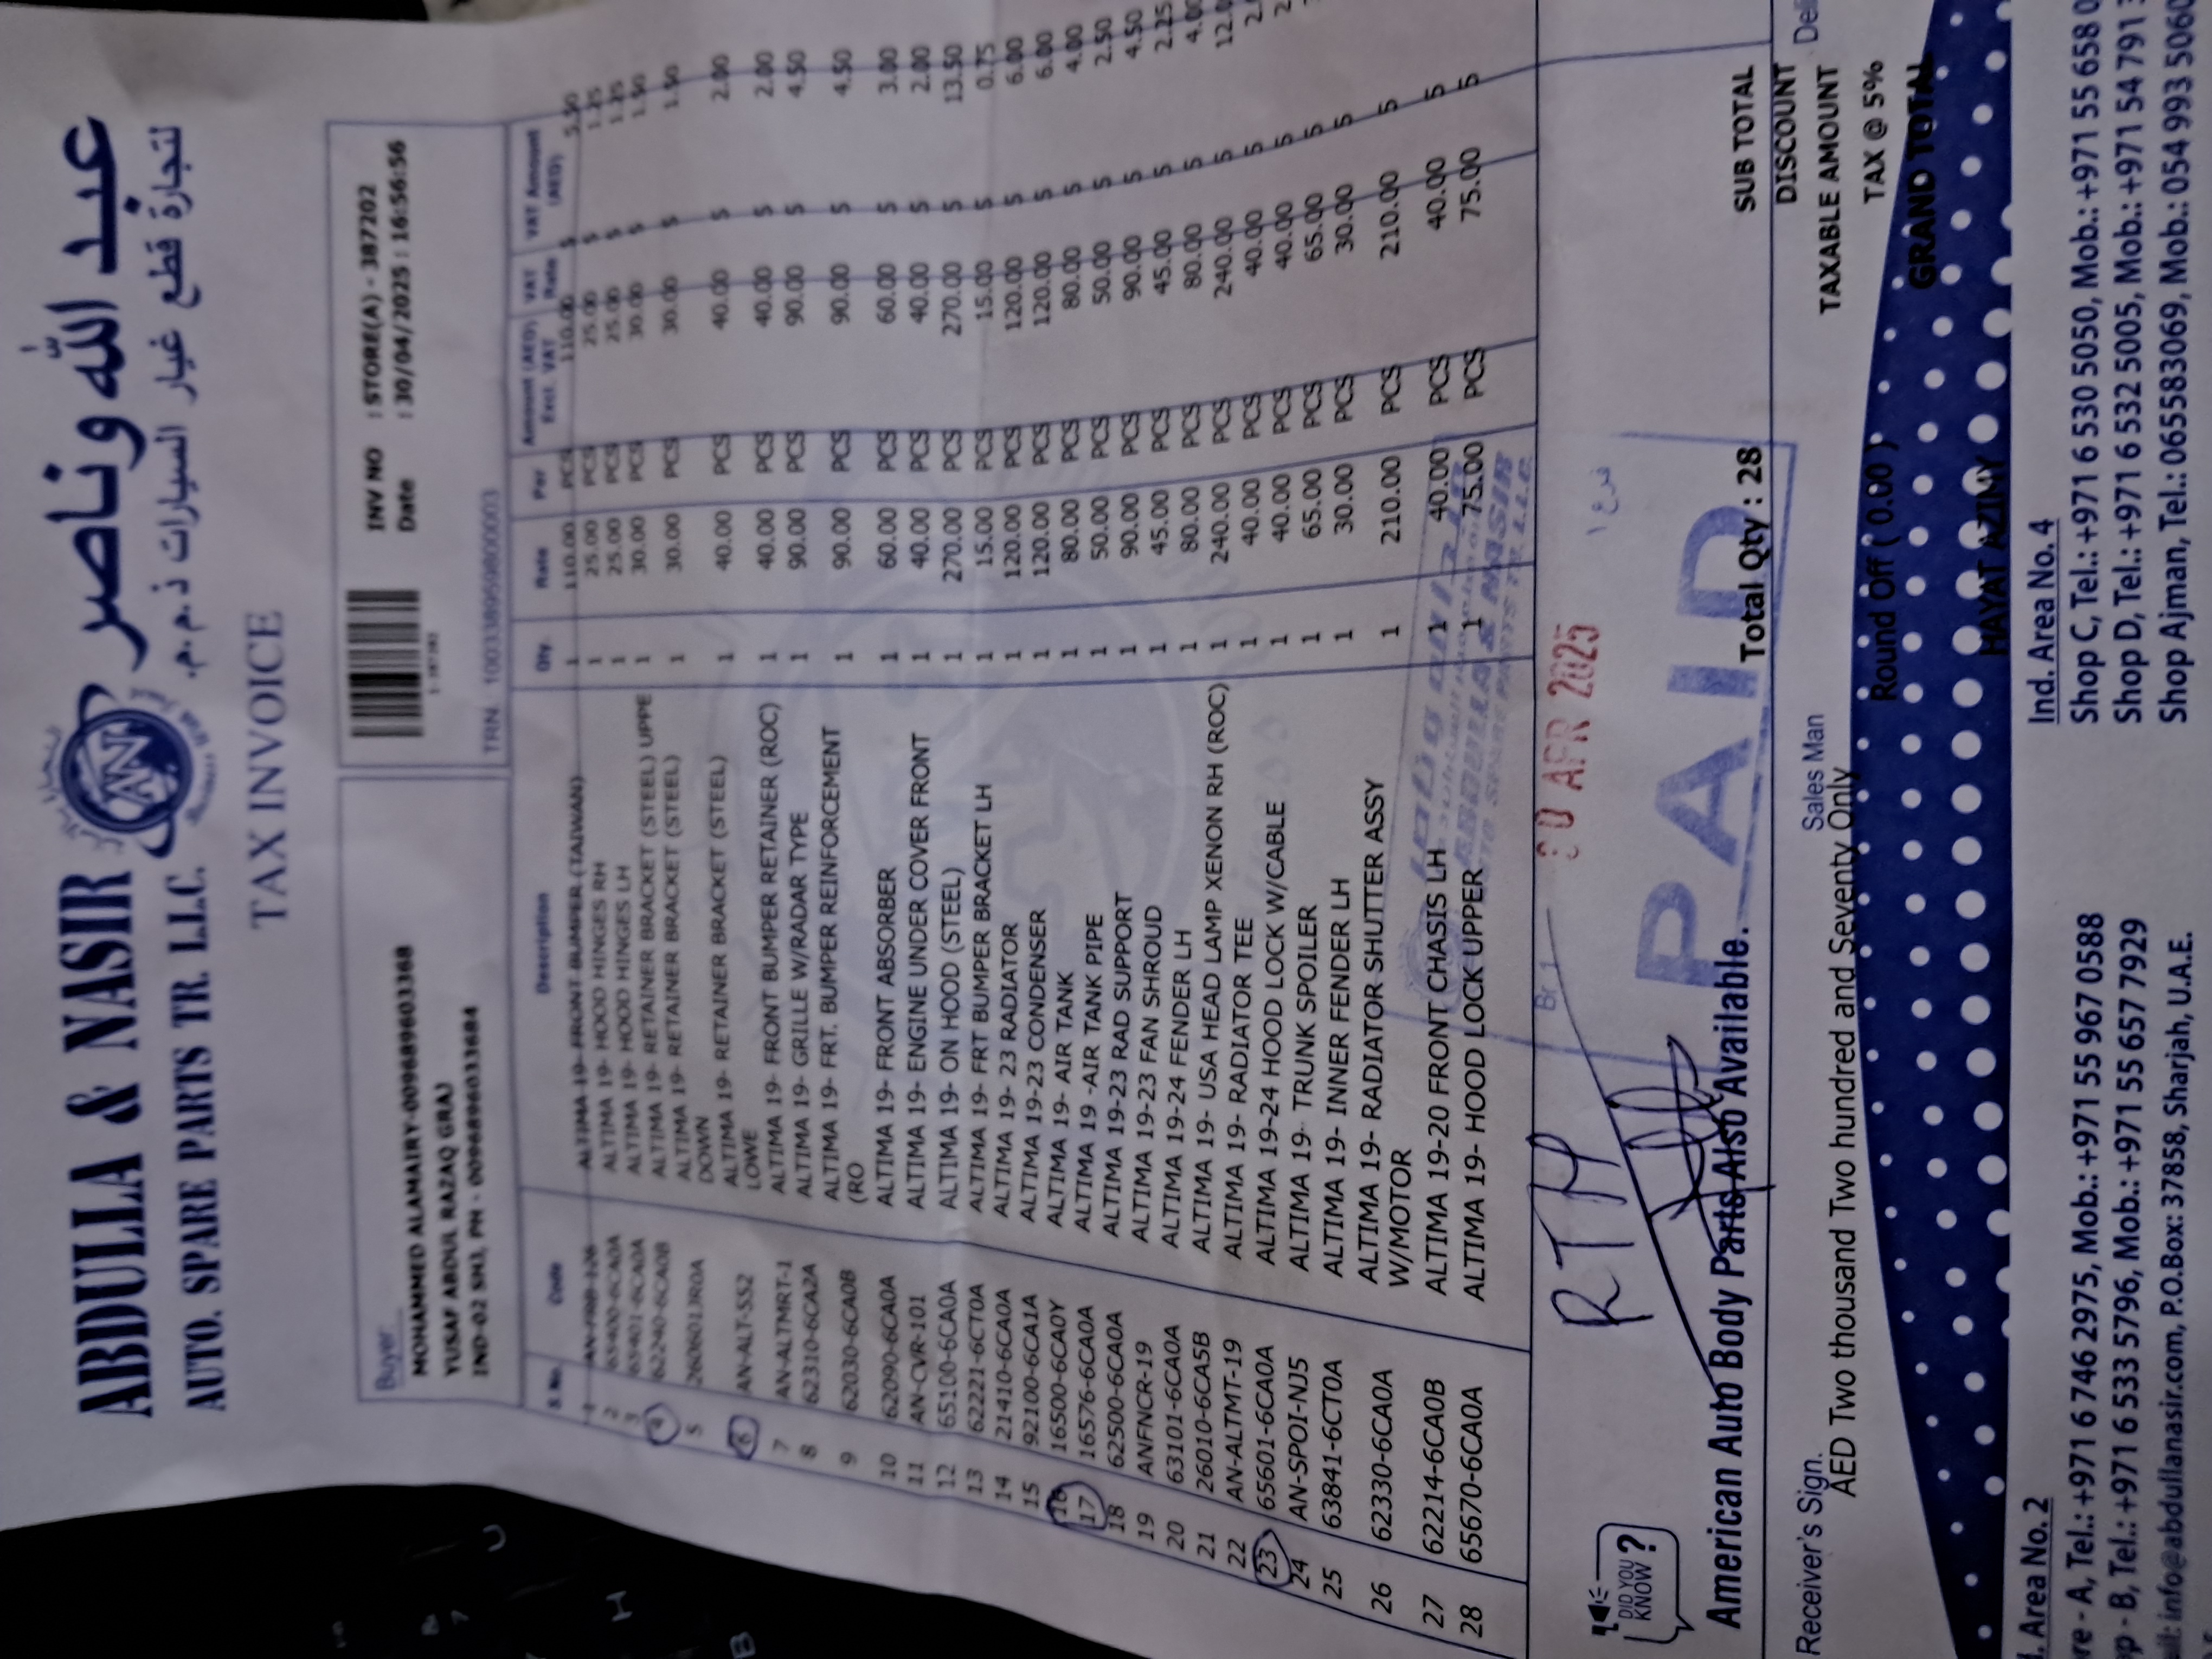 عبد الله وناصر
لتجارة قطع غيار السيارات ذ.م.م.
ABDULLA & NASIR
AUTO. SPARE PARTS TR. LLC.
AN
TAX INVOICE
Buyer:
MOHAMMED ALAMAIRY-0096896033684
YUSAF ABDUL RAZAQ GRAJ
IND-02 SHJ, PH - 0096896033684
INV NO : STORE(A) - 387202
Date : 30/04/2025 : 16:56:56
TRN. 100338959800003
S.No. Code Description Qty. Rate Per Amount (AED) Excl. VAT VAT Rate VAT Amount (AED)
1 AN-FRB-126 ALTIMA 19- FRONT BUMPER (TAIWAN) 1 110.00 PCS 110.00 5 5.50
2 65400-6CA0A ALTIMA 19- HOOD HINGES RH 1 25.00 PCS 25.00 5 1.25
3 65401-6CA0A ALTIMA 19- HOOD HINGES LH 1 25.00 PCS 25.00 5 1.25
4 62240-6CA0B ALTIMA 19- RETAINER BRACKET (STEEL) UPPE 1 30.00 PCS 30.00 5 1.50
5 260601JR0A ALTIMA 19- RETAINER BRACKET (STEEL) DOWN 1 30.00 PCS 30.00 5 1.50
6 AN-ALT-SS2 ALTIMA 19- RETAINER BRACKET (STEEL) LOWE 1 40.00 PCS 40.00 5 2.00
7 AN-ALTMRT-1 ALTIMA 19- FRONT BUMPER RETAINER (ROC) 1 40.00 PCS 40.00 5 2.00
8 62310-6CA2A ALTIMA 19- GRILLE W/RADAR TYPE 1 90.00 PCS 90.00 5 4.50
9 62030-6CA0B ALTIMA 19- FRT. BUMPER REINFORCEMENT (RO 1 90.00 PCS 90.00 5 4.50
10 62090-6CA0A ALTIMA 19- FRONT ABSORBER 1 60.00 PCS 60.00 5 3.00
11 AN-CVR-101 ALTIMA 19- ENGINE UNDER COVER FRONT 1 40.00 PCS 40.00 5 2.00
12 65100-6CA0A ALTIMA 19- ON HOOD (STEEL) 1 270.00 PCS 270.00 5 13.50
13 62221-6CT0A ALTIMA 19- FRT BUMPER BRACKET LH 1 15.00 PCS 15.00 5 0.75
14 21410-6CA0A ALTIMA 19- 23 RADIATOR 1 120.00 PCS 120.00 5 6.00
15 92100-6CA1A ALTIMA 19-23 CONDENSER 1 120.00 PCS 120.00 5 6.00
16 16500-6CA0Y ALTIMA 19- AIR TANK 1 80.00 PCS 80.00 5 4.00
17 16576-6CA0A ALTIMA 19 -AIR TANK PIPE 1 50.00 PCS 50.00 5 2.50
18 62500-6CA0A ALTIMA 19-23 RAD SUPPORT 1 90.00 PCS 90.00 5 4.50
19 ANFNCR-19 ALTIMA 19-23 FAN SHROUD 1 45.00 PCS 45.00 5 2.25
20 63101-6CA0A ALTIMA 19-24 FENDER LH 1 80.00 PCS 80.00 5
21 26010-6CA5B ALTIMA 19- USA HEAD LAMP XENON RH (ROC) 1 240.00 PCS 240.00 5
22 AN-ALTMT-19 ALTIMA 19- RADIATOR TEE 1 40.00 PCS 40.00 5
23 65601-6CA0A ALTIMA 19-24 HOOD LOCK W/CABLE 1 40.00 PCS 40.00 5
24 AN-SPOI-NJ5 ALTIMA 19- TRUNK SPOILER 1 65.00 PCS 65.00 5
25 63841-6CT0A ALTIMA 19- INNER FENDER LH 1 30.00 PCS 30.00 5
26 62330-6CA0A ALTIMA 19- RADIATOR SHUTTER ASSY W/MOTOR 1 210.00 PCS 210.00 5
27 62214-6CA0B ALTIMA 19-20 FRONT CHASIS LH 1 40.00 PCS 40.00 5
28 65670-6CA0A ALTIMA 19- HOOD LOCK UPPER 1 75.00 PCS 75.00 5
ABDULLA & NASIR
AUTO SPARE PARTS TR. L.L.C.
RTP
Br 1
30 APR 2025
فرع ١
PAID
DID YOU KNOW?
American Auto Body Parts Also Available.
Total Qty : 28
SUB TOTAL
DISCOUNT
TAXABLE AMOUNT
TAX @ 5%
GRAND TOTAL
Receiver's Sign.
Sales Man
AED Two thousand Two hundred and Seventy Only
Round Off ( 0.00 )
HAYAT AZIMY
Area No. 2
A, Tel.: +971 6 746 2975, Mob.: +971 55 967 0588
B, Tel.: +971 6 533 5796, Mob.: +971 55 657 7929
info@abdullanasir.com, P.O.Box: 37858, Sharjah, U.A.E.
Ind. Area No. 4
Shop C, Tel.: +971 6 530 5050, Mob.: +971 55 658 0
Shop D, Tel.: +971 6 532 5005, Mob.: +971 54 791
Shop Ajman, Tel.: 065583069, Mob.: 054 993 5060